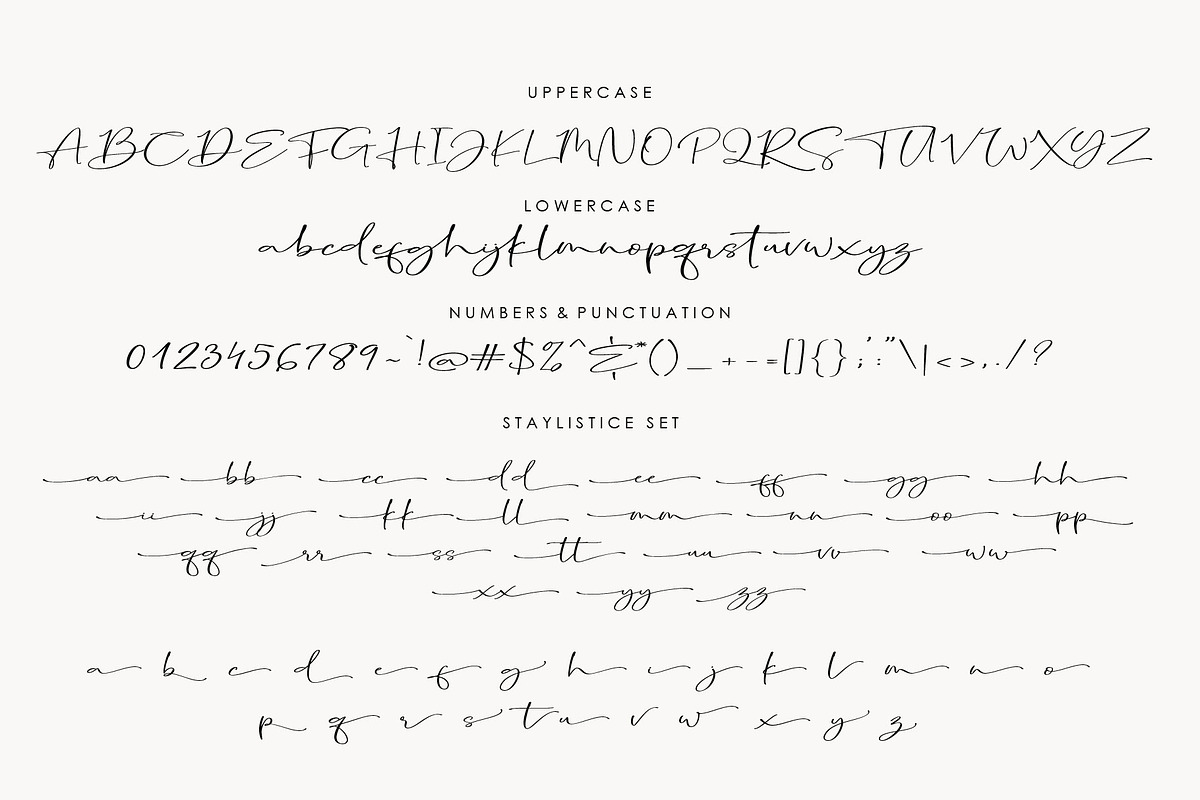 UPPERCASE
ABCDEFGHIJKLMNOPQRSTUVWXYZ
LOWERCASE
abcdefghijklmnopqrstuvwxyz
NUMBERS & PUNCTUATION
0123456789~`!@#$%^&*()_+-=[]{};':"\|<>,./?
STAYLISTICE SET
aa bb cc dd ee ff gg hh
ii jj kk ll mm nn oo pp
qq rr ss tt uu vv ww
xx yy zz
a b c d e f g h i j k l m n o
p q r s t u v w x y z